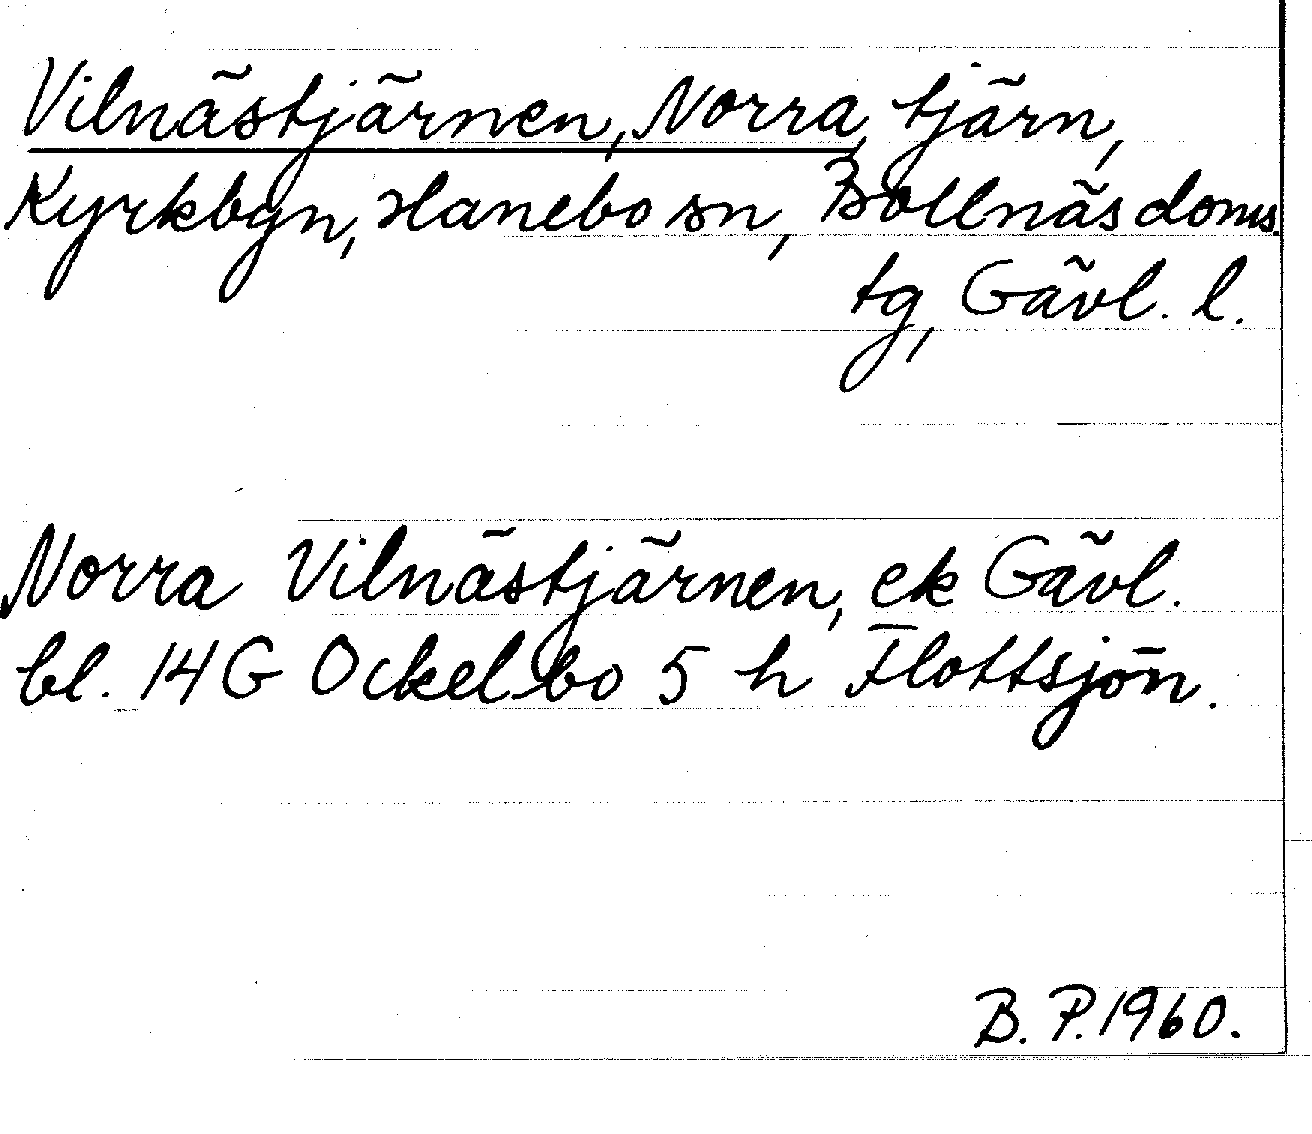 Vilnästjärnen, Norra tjärn,
Kyrkbyn, Hanebo sn, Bollnäs doms.
tg, Gävl. l.
Norra Vilnästjärnen, ek Gävl.
bl. 14 G Ockelbo 5 h Flottsjön.
B. P. 1960.